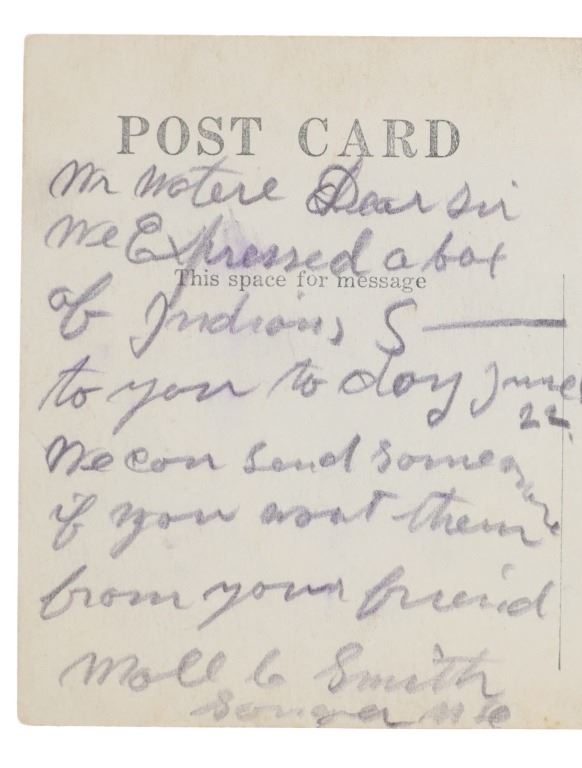 POST CARD
Mr Dear Sir
We Expressed a box
This space for message
of Indians S
to you to day June
22
We can send some more
if you want them
from your friend
Moll C Smith